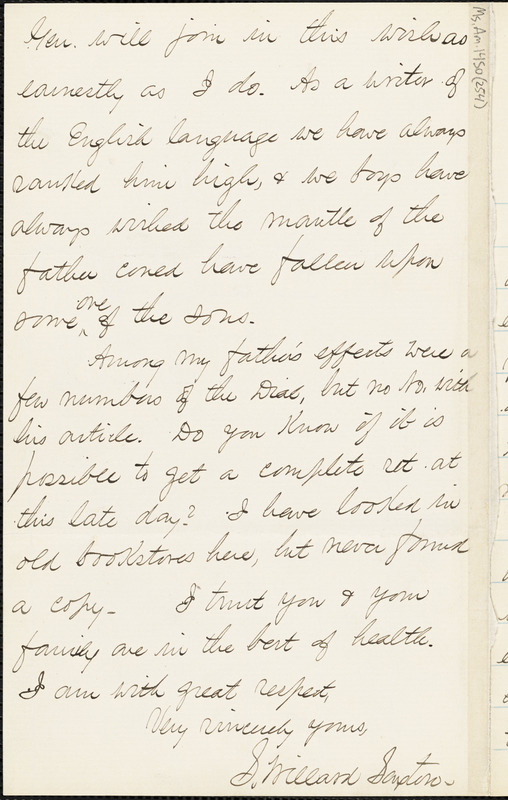 Gen. will join in this wish as
earnestly as I do. As a writer of
the English language we have always
ranked him high, & we boys have
always wished the mantle of the
father could have fallen upon
some one of the sons.
Among my father's effects were a
few numbers of the Dial, but no No. with
his article. Do you know if it is
possible to get a complete set at
this late day? I have looked in
old bookstores here, but never found
a copy- I trust you & your
family are in the best of health.
I am with great respect,
Very sincerely yours,
S. Willard Saxton-
Ms. Am. 1450 (254)